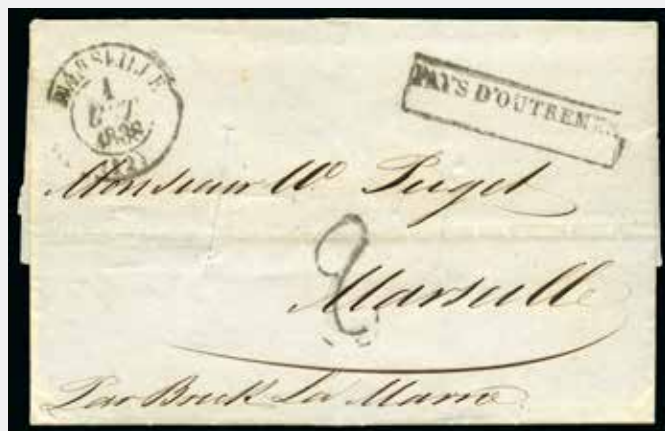 MARSEILLE
1
OCT
1838
(12)
PAYS D'OUTREMER
Monsieur Wm Puget
2
Marseille
Par Brick La Marne